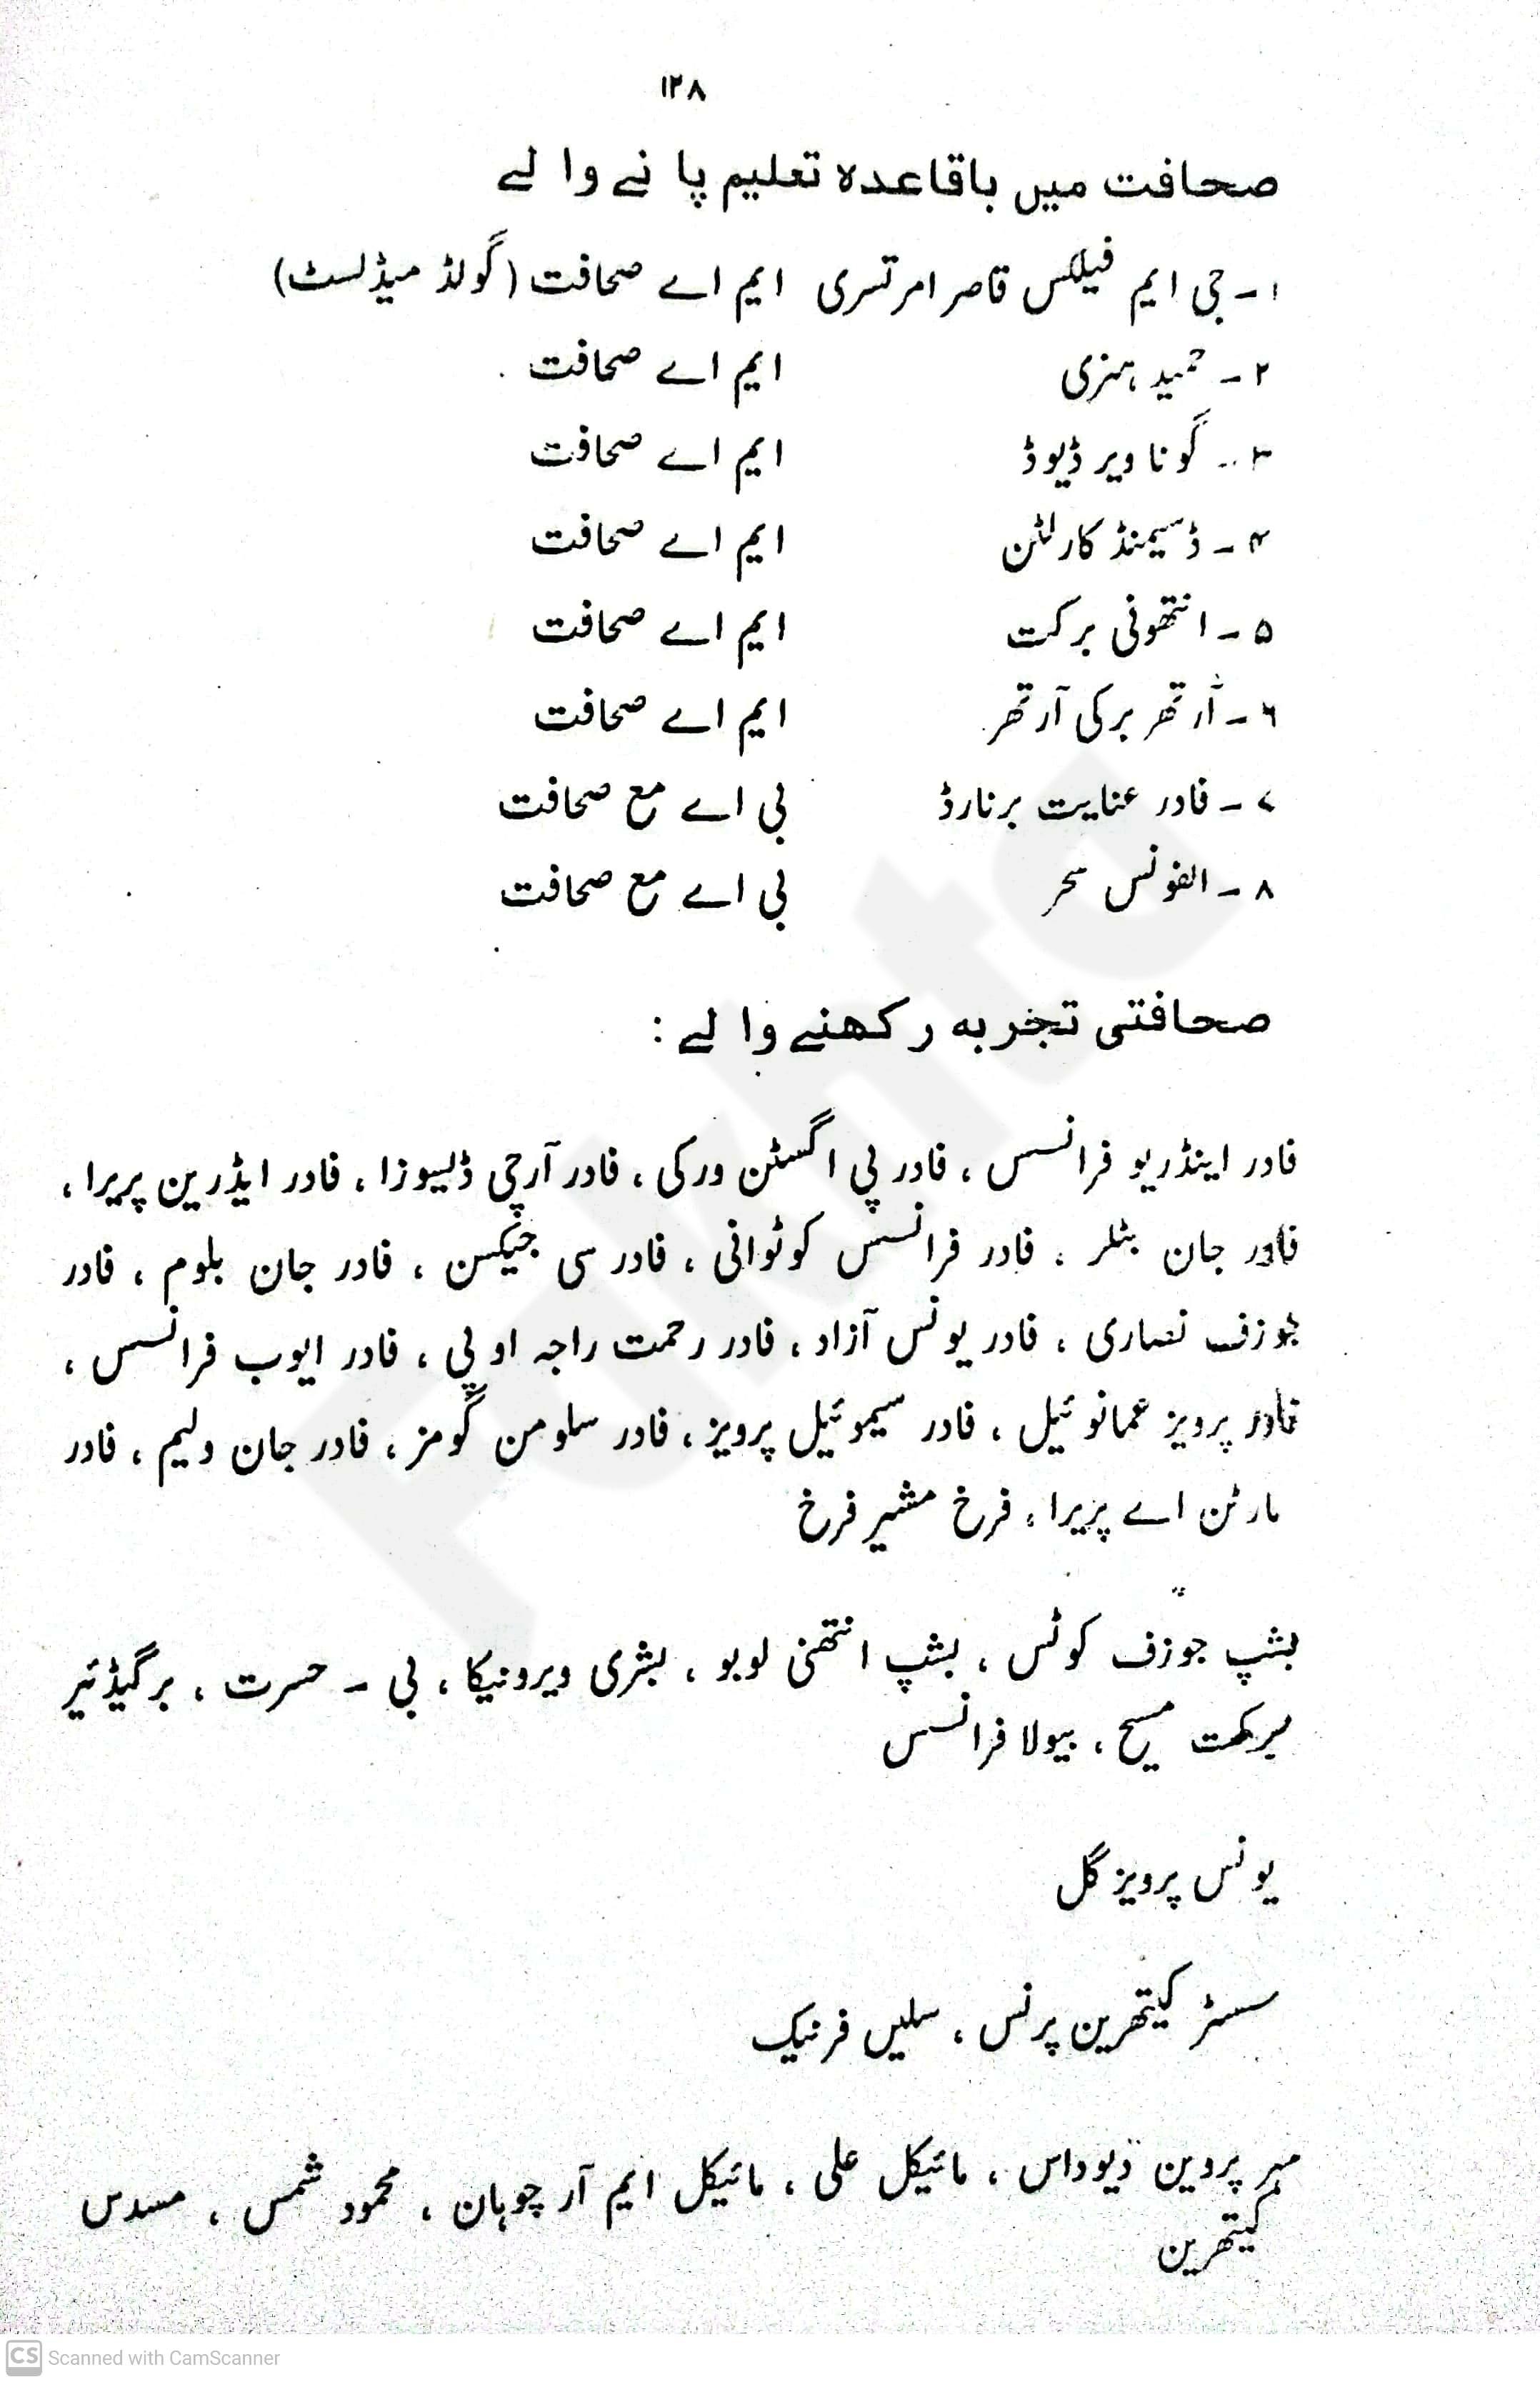 ۱۲۸
صحافت میں باقاعدہ تعلیم پانے والے
۱۔ جی ایم فیلکس قاصر امرتسری ایم اے صحافت (گولڈ میڈلسٹ)
۲۔ حمید ہنری ایم اے صحافت
۳۔ گونا ویر ڈیوڈ ایم اے صحافت
۴۔ ڈسیمنڈ کارلٹن ایم اے صحافت
۵۔ انتھونی برکت ایم اے صحافت
۶۔ آرتھر برکی آرتھر ایم اے صحافت
۷۔ فادر عنایت برنارڈ بی اے مع صحافت
۸۔ الفونس سحر بی اے مع صحافت
صحافتی تجربہ رکھنے والے :
فادر اینڈریو فرانسس ، فادر پی اگسٹن ورکی ، فادر آرچی ڈیسوزا ، فادر ایڈرین پریرا ،
فادر جان بٹلر ، فادر فرانسس کوٹوانی ، فادر سی جیکسن ، فادر جان بلوم ، فادر
جوزف نصاری ، فادر یونس آزاد ، فادر رحمت راجہ او پی ، فادر ایوب فرانسس ،
فادر پرویز عمانوئیل ، فادر سیموئیل پرویز ، فادر سلومن گومز ، فادر جان ولیم ، فادر
مارٹن اے پریرا ، فرخ مشیر فرخ
بشپ جوزف کوٹس ، بشپ انتھنی لوبو ، بشری ویرونیکا ، بی ۔ حسرت ، برگیڈئیر
برکت مسیح ، بیولا فرانسس
یونس پرویز گل
سسٹر کیتھرین پرنس ، سلیس فرنیک
مہر پروین دیوداس ، مائیکل علی ، مائیکل ایم آر چوہان ، محمود شمس ، مسدس
کیتھرین
CS Scanned with CamScanner